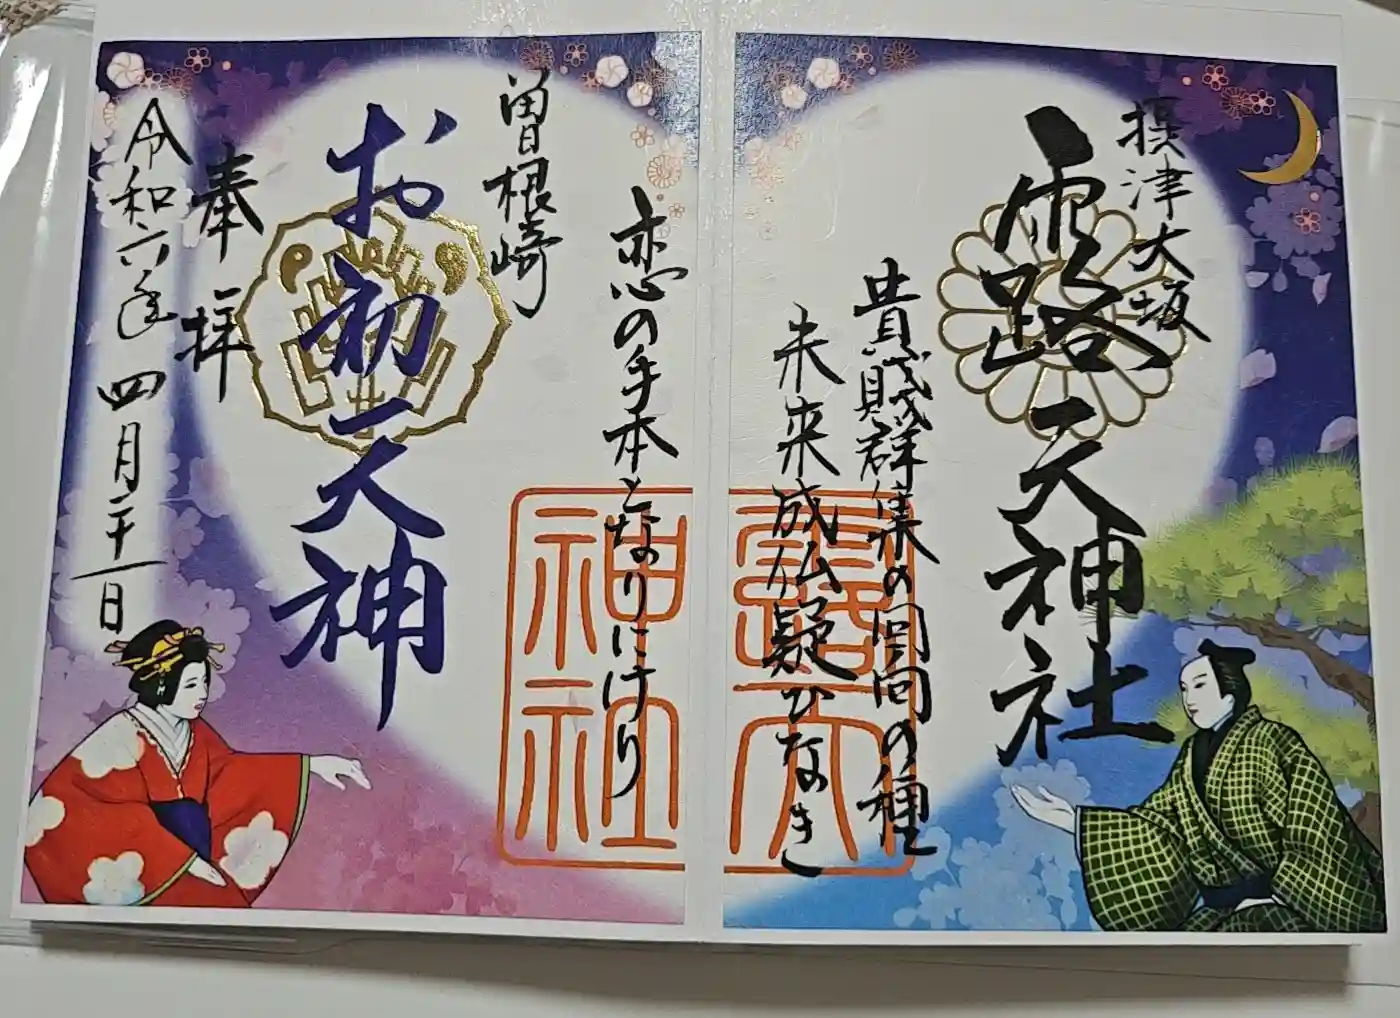 摂津大坂
露天神社
貴賎群集の回向の種
未来成仏疑ひなき
恋の手本となりにけり
曽根崎
お初天神
奉拝
令和六年四月二十一日
露天
神社